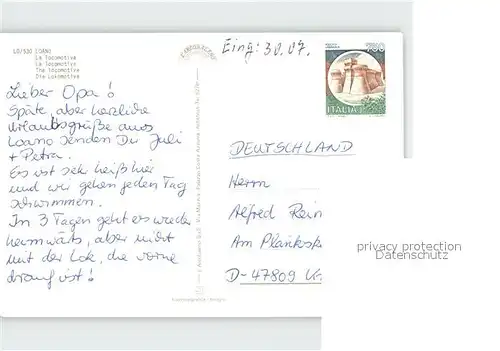 LO/530 LOANO
La locomotiva
La locomotive
The locomotive
Die Lokomotive
Eing: 30.07.
750
ITALIA
Lieber Opa!
Späte, aber herzliche
Urlaubsgrüße aus
Loano senden Dir Juli
+ Petra.
Es ist sehr heiß hier
und wir gehen jeden Tag
schwimmen.
In 3 Tagen geht es wieder
heimwärts, aber nicht
mit der Lok, die vorne
drauf ist!
DEUTSCHLAND
Herrn
Alfred Rein
Am Planksk
D-47809 Kr
privacy protection
Datenschutz